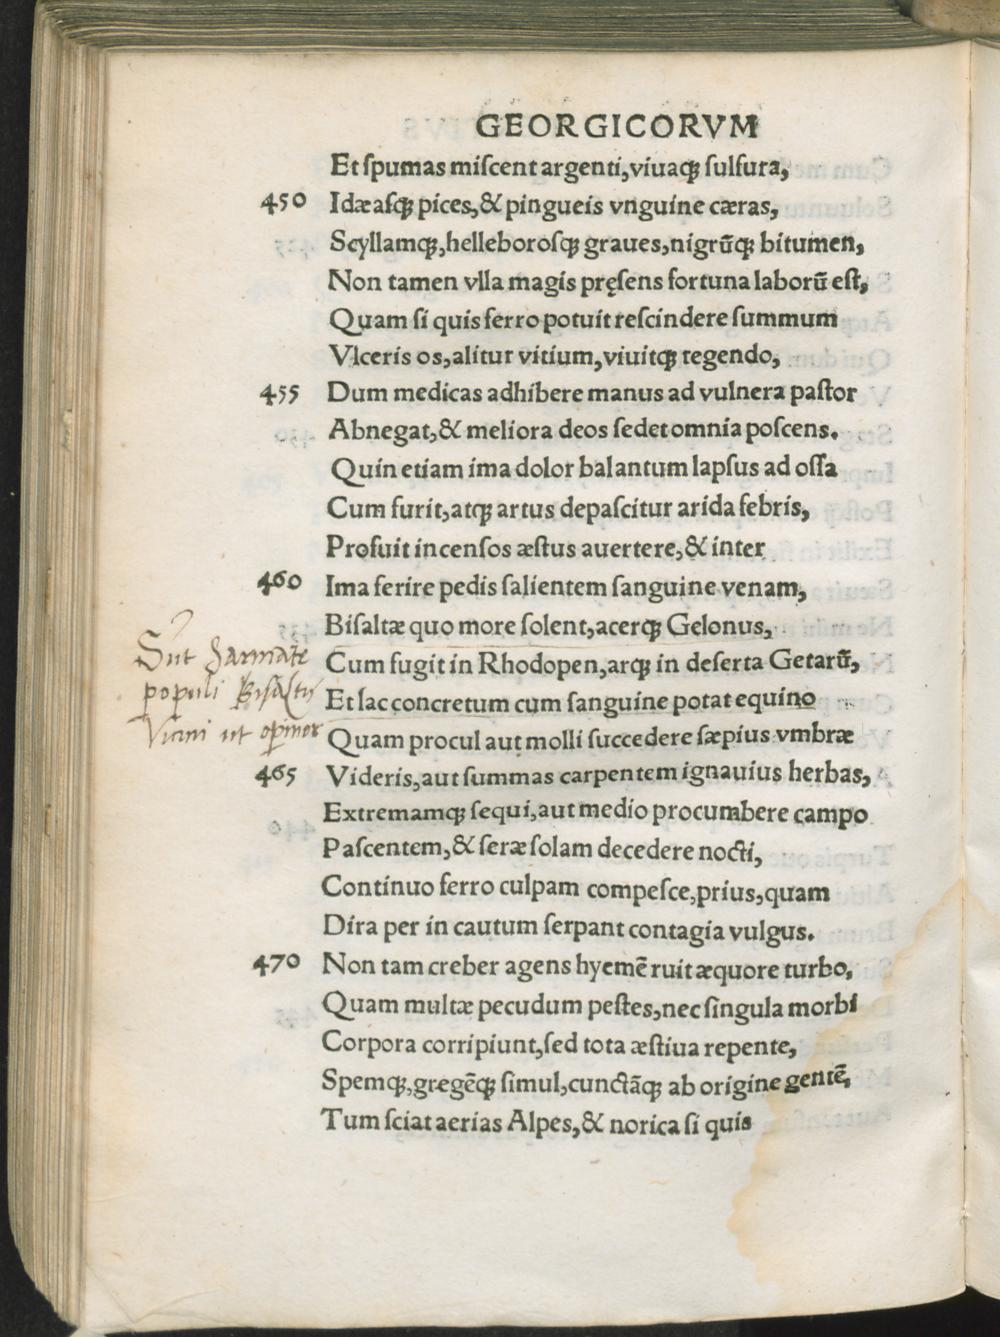 GEORGICORVM
Et ſpumas miſcent argenti, viuaqꝫ ſulfura,
450 Idæaſqꝫ pices, & pingueis vnguine cæras,
Scyllamqꝫ, helleboroſqꝫ graues, nigrũqꝫ bitumen,
Non tamen vlla magis pręſens fortuna laborũ eſt,
Quam ſi quis ferro potuit reſcindere ſummum
Vlceris os, alitur vitium, viuitqꝫ tegendo,
455 Dum medicas adhibere manus ad vulnera paſtor
Abnegat, & meliora deos ſedet omnia poſcens.
Quin etiam ima dolor balantum lapſus ad oſſa
Cum furit, atqꝫ artus depaſcitur arida febris,
Profuit incenſos æſtus auertere, & inter
460 Ima ferire pedis ſalientem ſanguine venam,
Biſaltæ quo more ſolent, acerqꝫ Gelonus,
Cum fugit in Rhodopen, atqꝫ in deſerta Getarũ,
Et lac concretum cum ſanguine potat equino
Quam procul aut molli ſuccedere ſæpius vmbræ
465 Videris, aut ſummas carpentem ignauius herbas,
Extremamqꝫ ſequi, aut medio procumbere campo
Paſcentem, & ſeræ ſolam decedere nocti,
Continuo ferro culpam compeſce, prius, quam
Dira per in cautum ſerpant contagia vulgus.
470 Non tam creber agens hyemẽ ruit æquore turbo,
Quam multæ pecudum peſtes, nec ſingula morbi
Corpora corripiunt, ſed tota æſtiua repente,
Spemqꝫ, gregẽqꝫ ſimul, cunctãqꝫ ab origine gentẽ,
Tum ſciat aerias Alpes, & norica ſi quis
Sũt Sarmatę
populi Biſaltę
Vicini ut opinor